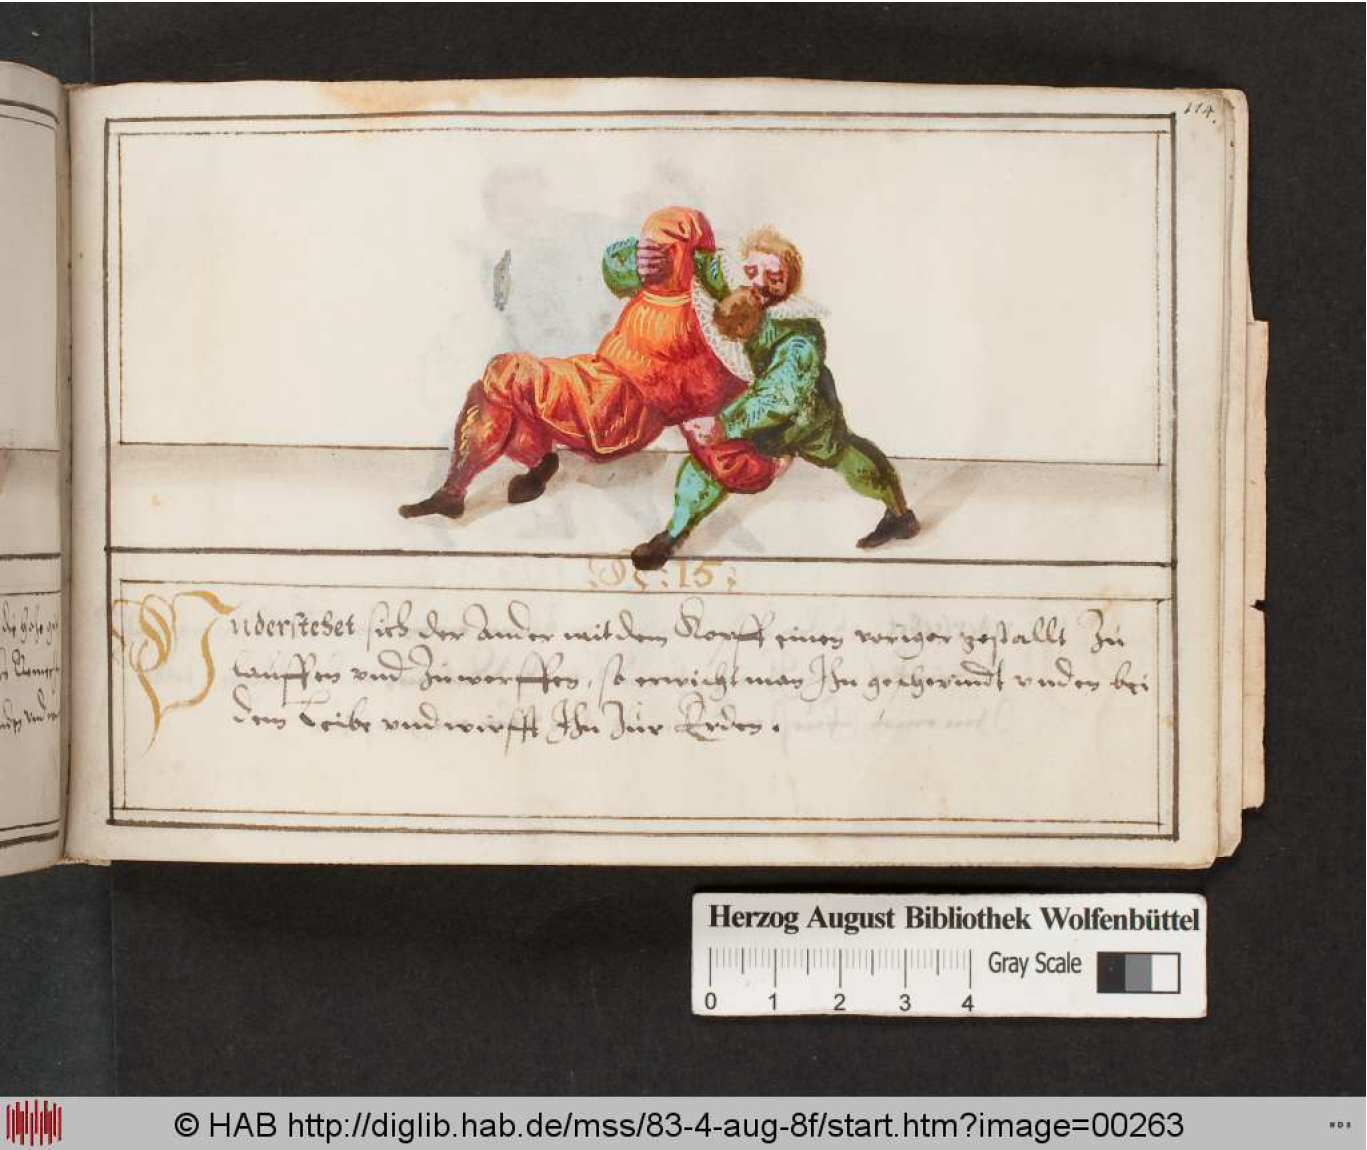 114.
N: 15:
Vnderstehet sich der Ander mit dem Kopff einen voriger gestallt Zu
lauffen vnd Zu werffen, so erwischt man Ihn geschwindt vnden bei
dem Leibe vnd wirfft Ihn Zur Erden.
Herzog August Bibliothek Wolfenbüttel
Gray Scale
0 1 2 3 4
© HAB http://diglib.hab.de/mss/83-4-aug-8f/start.htm?image=00263